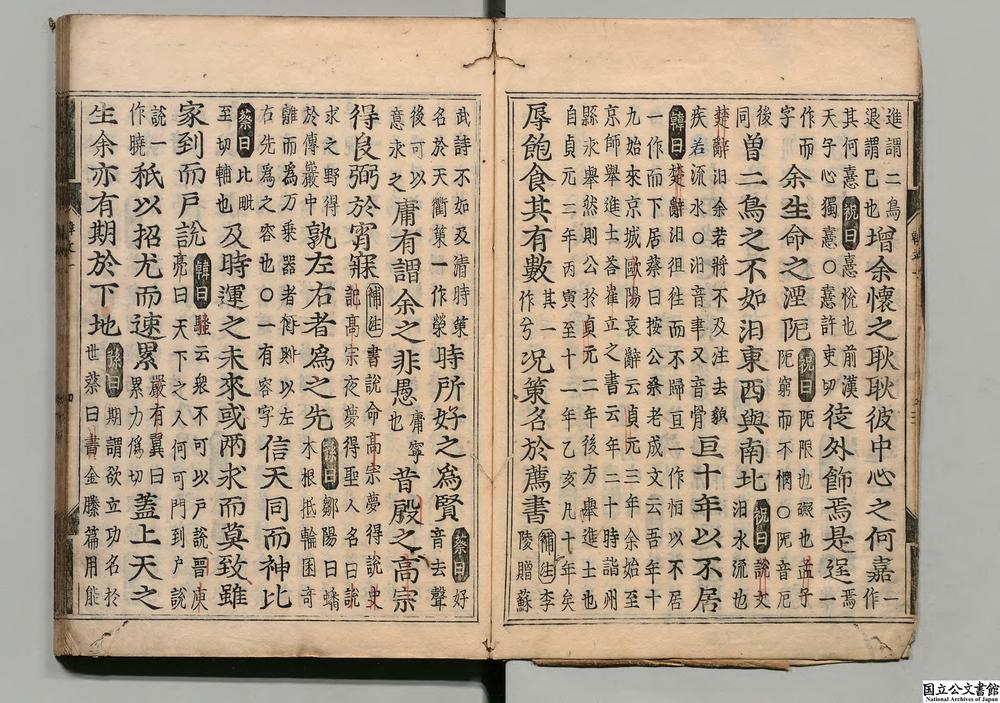 進謂二鳥 嘉一作
退謂已也增余懷之耿耿彼中心之何嘉作
其何憙祝曰憙悅也前漢
天子心獨憙〇憙許吏切徒外飾焉是逞一
作而余生命之湮阨祝曰阨限也
字 阨窮而不憫〇阨音厄
後曾二鳥之不如汨東西與南北祝曰說文
同 汨水流也
楚辭汨余若將不及注去貌
疾若流水〇汨音聿又音骨亘十年以不居
韓曰楚辭汨徂往而不歸亘一作恒以不居
一作而下居蔡曰按公桑老成文云吾年十
九始來京城歐陽哀辭云貞元三年余始至
京師舉進士答崔立之書云年二十時詣州
縣求舉然則公於貞元二年後方舉進士也
自貞元二年丙寅至十一年乙亥凡十年矣
辱飽食其有數其一作兮況策名於薦書補注李陵贈蘇
武詩不如及清時策
名於天衢策一作榮時所好之爲賢蔡曰好音去聲
後可以
意求之庸有謂余之非愚庸寧也昔殷之高宗
得良弼於宵寐補注書說命高宗夢得說史
記高宗夜夢得聖人名曰說
求之野得
於傅巖中孰左右者爲之先孫曰鄒陽曰蟠
木根抵輪囷奇
離而爲万乘器者何則以左
右先爲之容也〇一有容字信天同而神比
蔡曰比毗
至切輔也及時運之未來或兩求而莫致雖
家到而戶說韓曰騷云衆不可以戶說晉庾
亮曰天下之人何可門到戶說
說一
作曉秪以招尤而速累嚴有翼曰
累力僞切蓋上天之
生余亦有期於下地孫曰期謂欲立功名於
世蔡曰書金縢篇用能
国立公文書館
National Archives of Japan